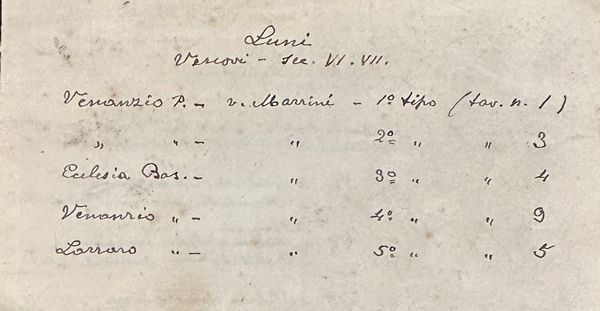 Luni
Vescovi - sec. VI. VII.
Venanzio P. - v. Marini - 1º tipo (tav. n. 1)
„ „ - „ 2º „ „ 3
Eclesia Bas. - „ 3º „ „ 4
Venanzio „ - „ 4º „ „ 9
Lazzaro „ - „ 5º „ „ 5